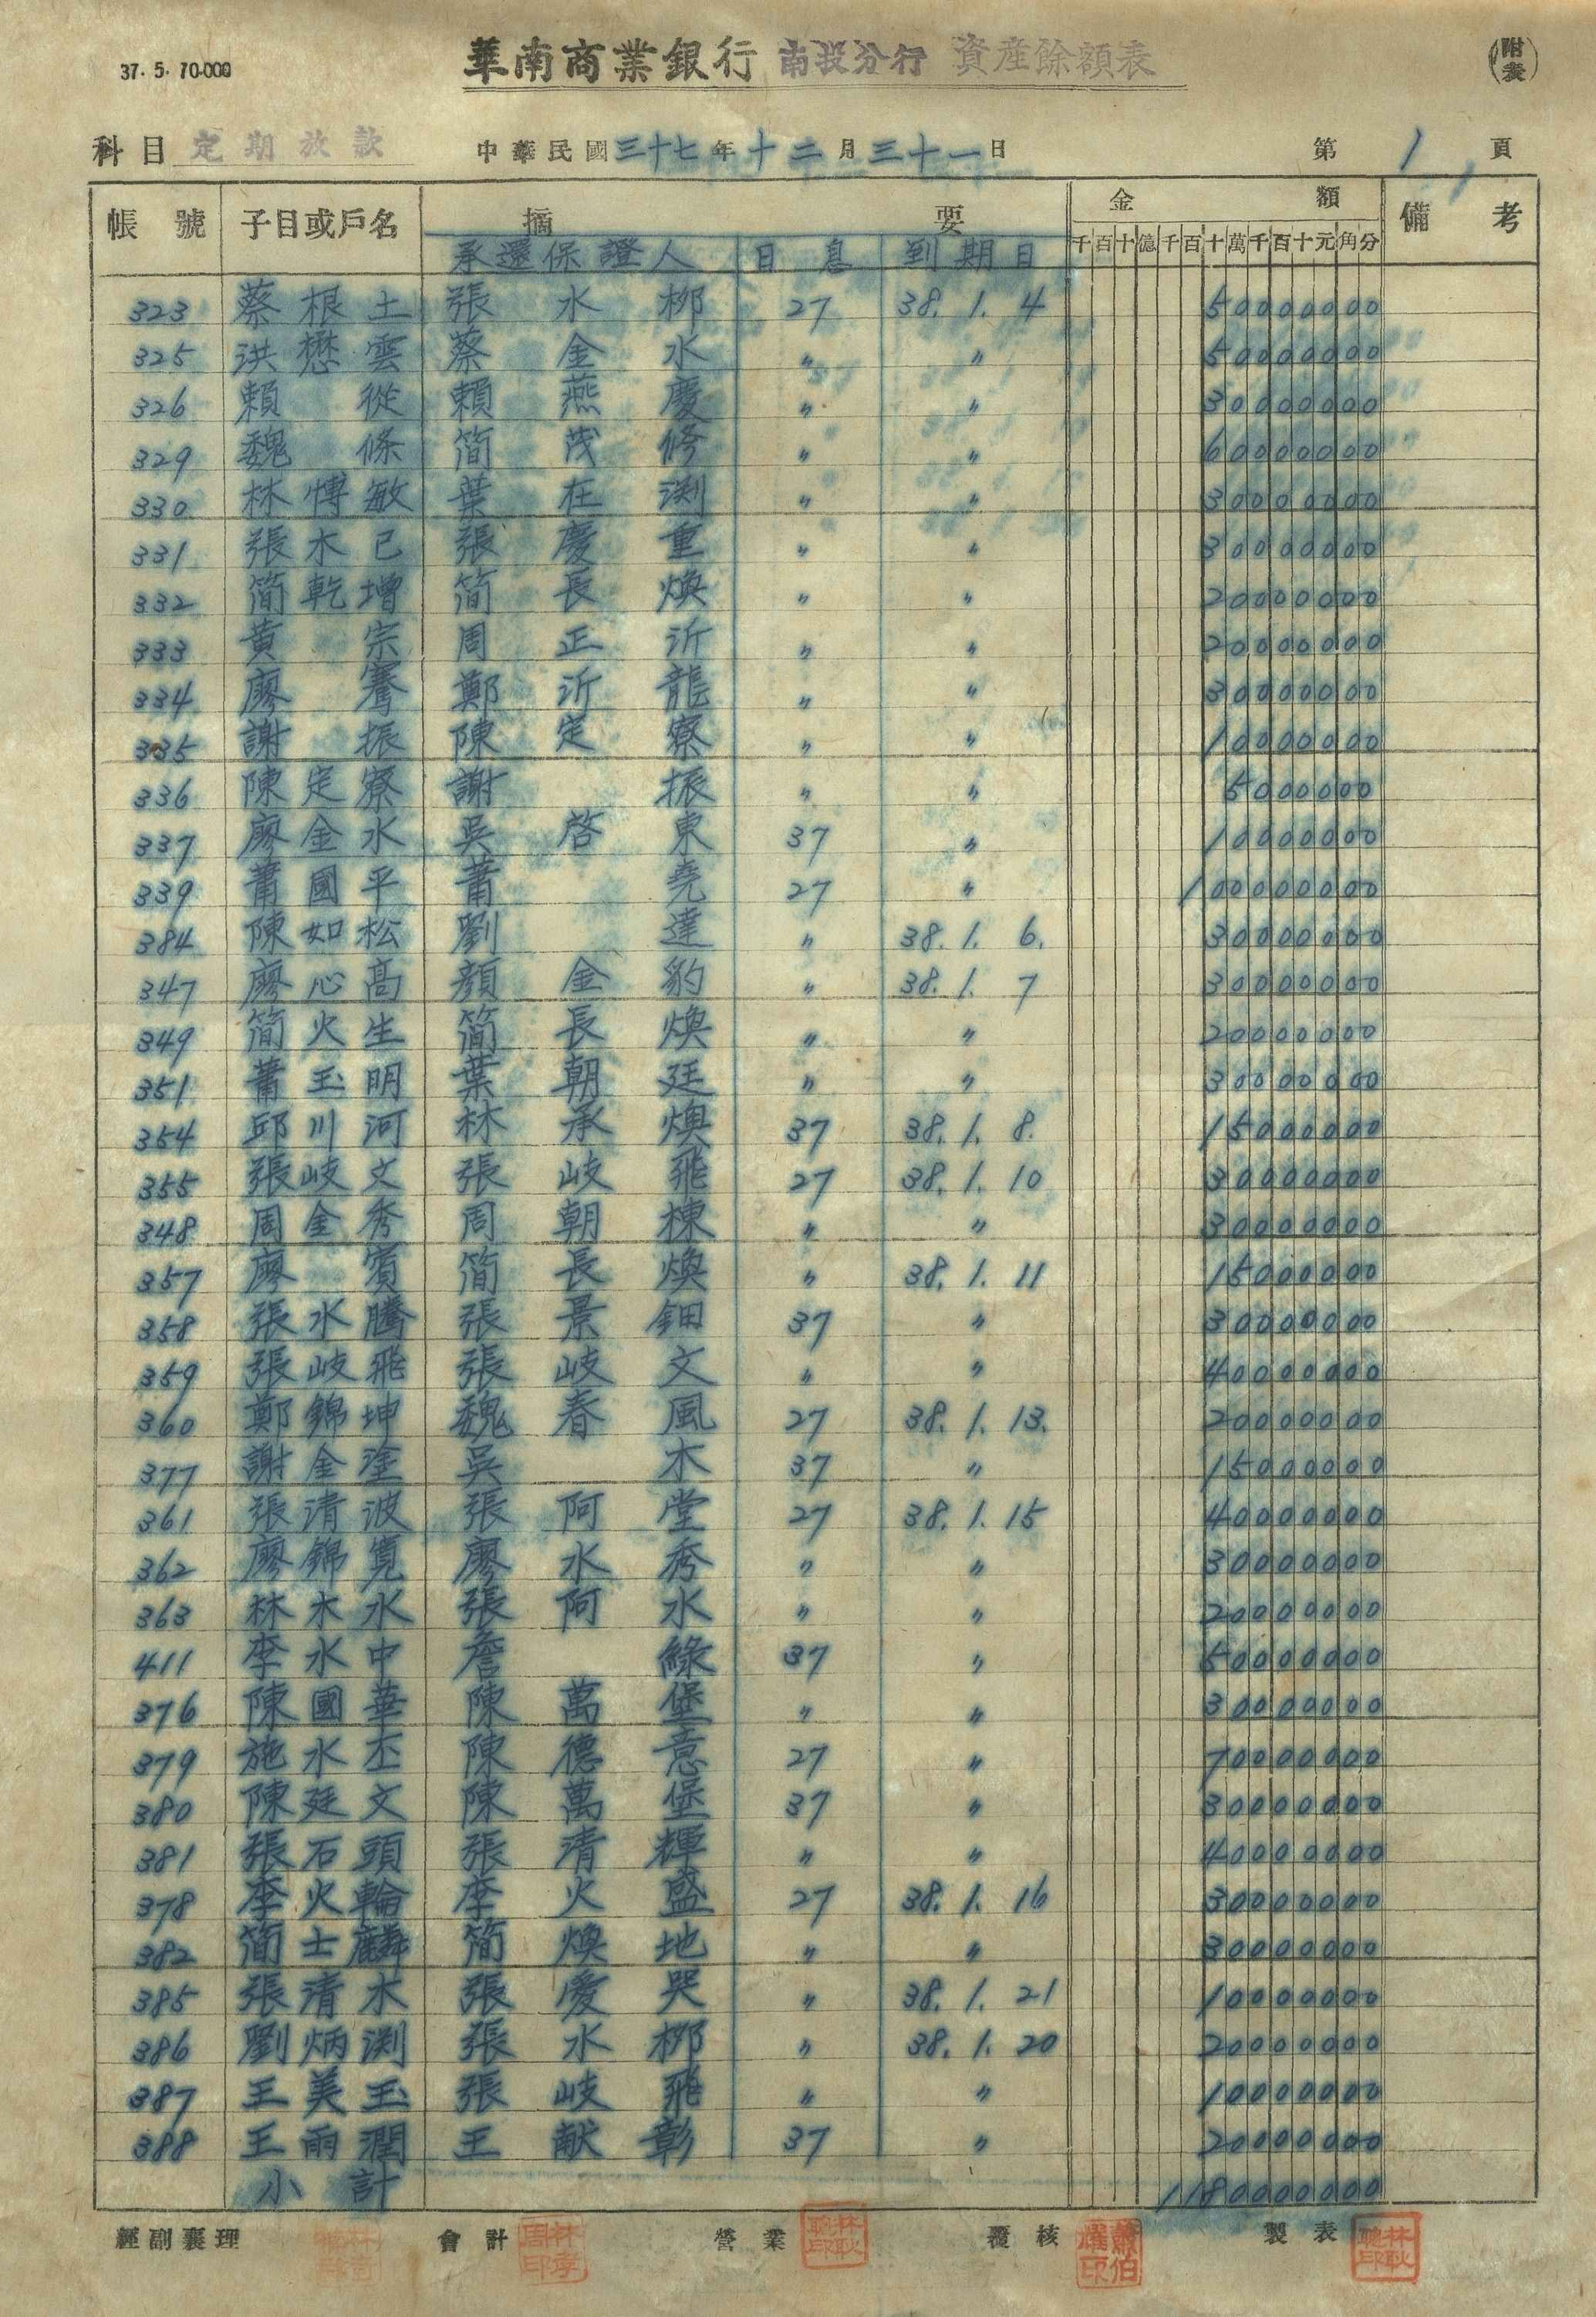 37. 5. 70.000
華南商業銀行 南投分行 資產餘額表
(附表)
科目 定期放款 中華民國三十七年十二月三十一日 第1頁
帳號 子目或戶名 摘要 金額 備考
承還保證人 日息 到期日 千百十億千百十萬千百十元角分
323 蔡根土 張水柳 27 38. 1. 4 50000000
325 洪懋雲 蔡金水 〃 〃 50000000
326 賴從 賴燕慶 〃 〃 30000000
329 魏條 簡茂修 〃 〃 60000000
330 林博敏 葉在渕 〃 〃 30000000
331 張木已 張慶重 〃 〃 30000000
332 簡乾增 簡長煥 〃 〃 20000000
333 黃宗 周正沂 〃 〃 20000000
334 廖騫 鄭沂龍 〃 〃 30000000
335 謝振 陳定寮 〃 〃 10000000
336 陳定寮 謝振 〃 〃 5000000
337 廖金水 吳啓東 37 〃 10000000
339 蕭國平 蕭堯 27 〃 100000000
384 陳如松 劉達 〃 38. 1. 6. 30000000
347 廖心高 顏金豹 〃 38. 1. 7 30000000
349 簡火生 簡長煥 〃 〃 20000000
351 蕭玉明 葉朝廷 〃 〃 30000000
354 邱川河 林承煥 37 38. 1. 8. 15000000
355 張岐文 張岐飛 27 38. 1. 10 30000000
348 周金秀 周朝棟 〃 〃 30000000
357 廖賓 簡長煥 〃 38. 1. 11 15000000
358 張水騰 張景鈿 37 〃 30000000
359 張岐飛 張岐文 〃 〃 40000000
360 鄭錦坤 魏春風 27 38. 1. 13. 20000000
377 謝金塗 吳木 37 〃 15000000
361 張清波 張阿堂 27 38. 1. 15 40000000
362 廖錦寬 廖水秀 〃 〃 30000000
363 林木水 張阿水 〃 〃 20000000
411 李水中 詹綠 37 〃 50000000
376 陳國華 陳萬堡 〃 〃 30000000
379 施水丕 陳德意 27 〃 70000000
380 陳廷文 陳萬堡 37 〃 30000000
381 張石頭 張清輝 〃 〃 40000000
378 李火輪 李火盛 27 38. 1. 16 30000000
382 簡士麟 簡煥地 〃 〃 30000000
385 張清木 張愛哭 〃 38. 1. 21 10000000
386 劉炳渕 張水柳 〃 38. 1. 20 20000000
387 王美玉 張岐飛 〃 〃 10000000
388 王雨潤 王献彰 37 〃 20000000
小計 1180000000
經副襄理 會計 營業 覆核 製表
林耿聰印 蕭伯耀印 林耿聰印